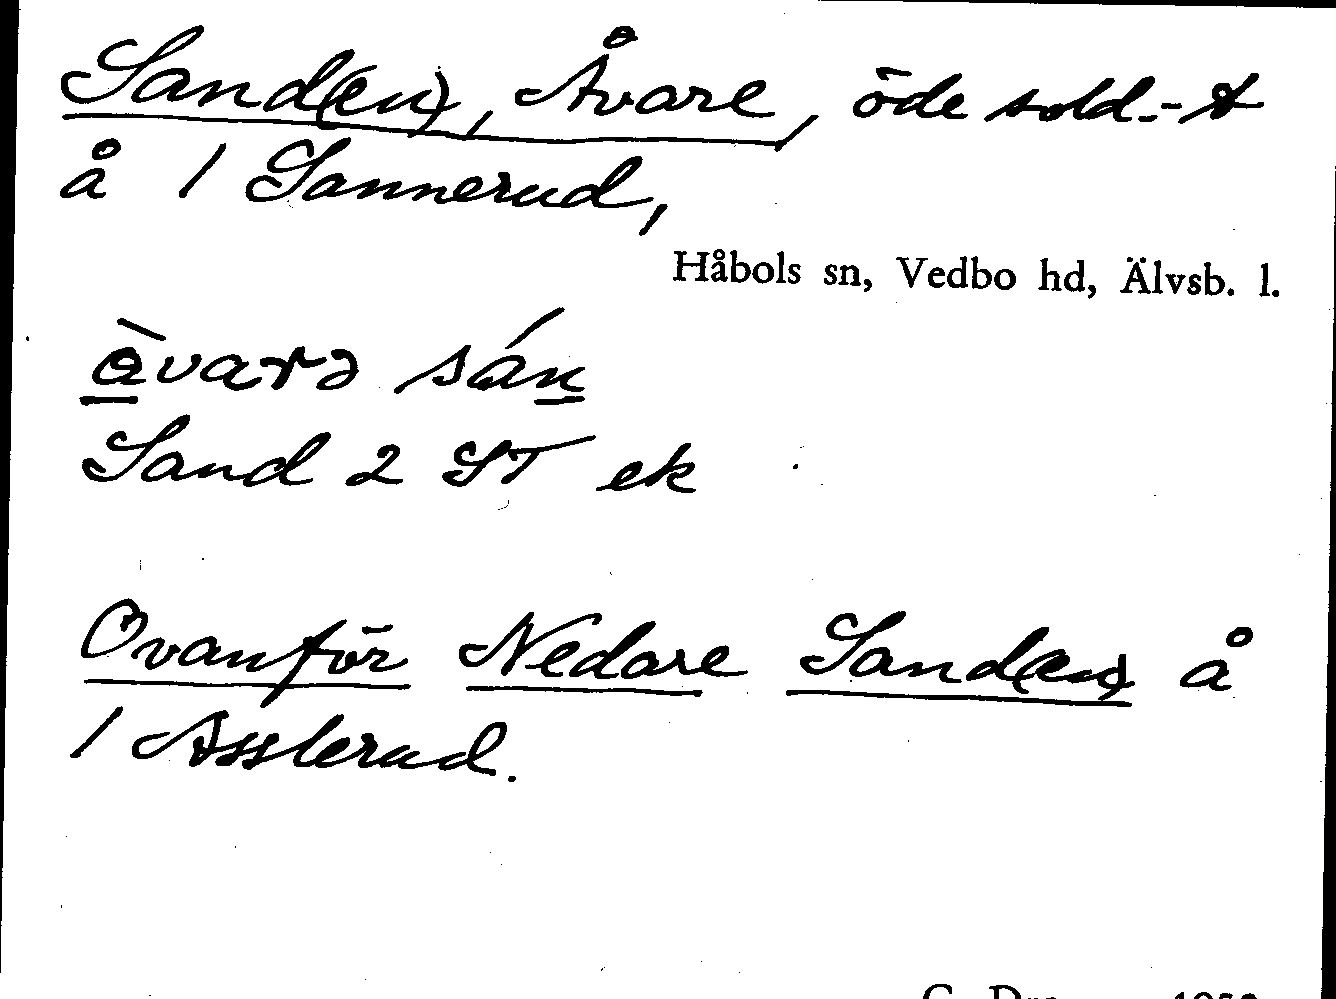 Sand(en), Åvare, öde sold.-t
å 1 Sannerud,
Håbols sn, Vedbo hd, Älvsb. l.
å̀varə sán
Sand 2 ST ek
Ovanför Nedare Sand(en) å
1 Asslerud.